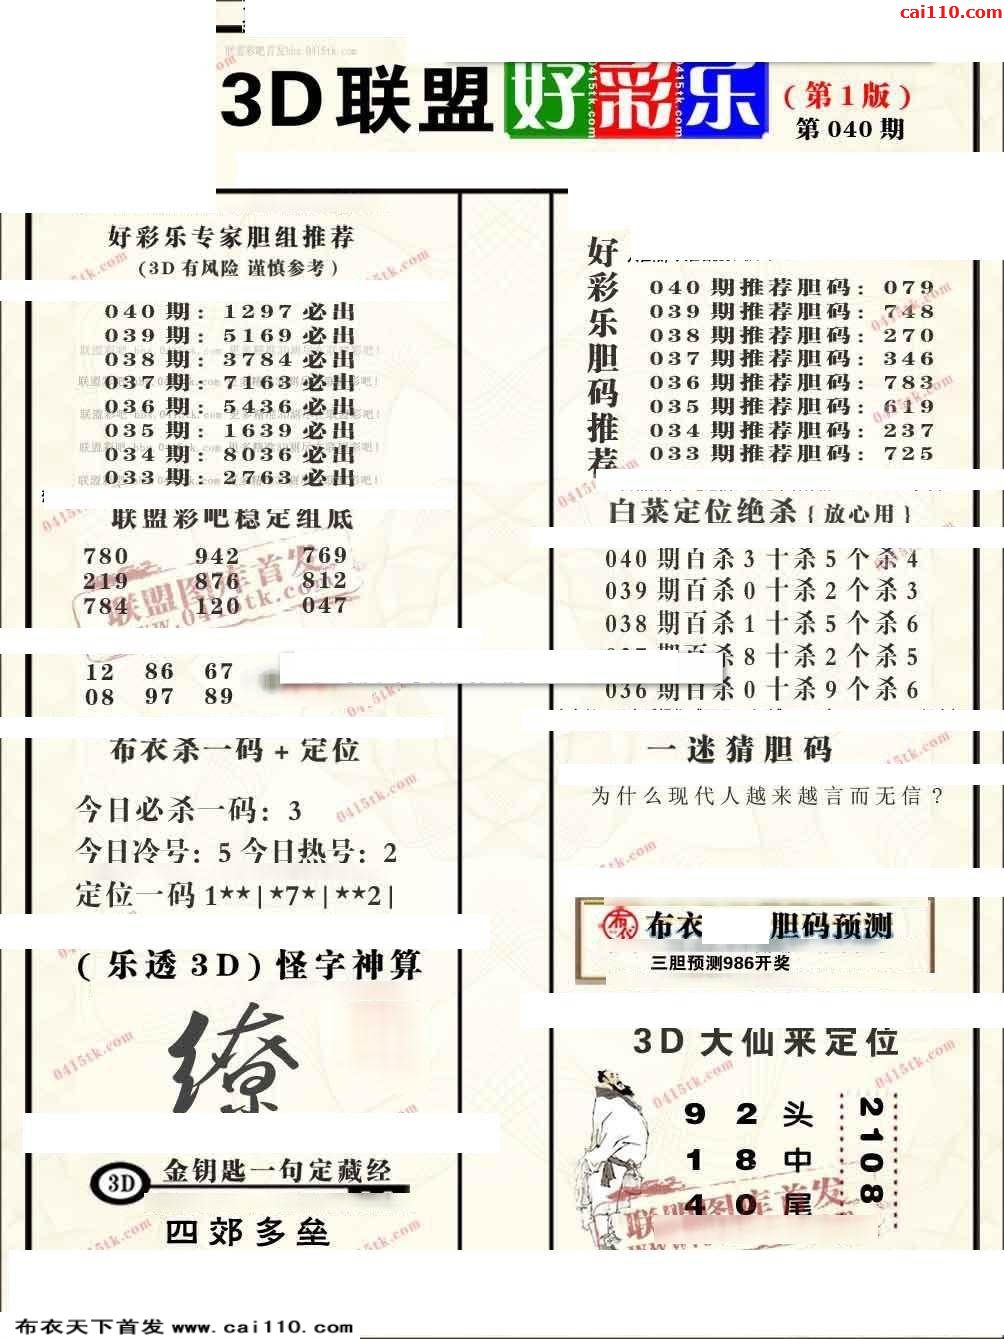 cai110.com
3D联盟好彩乐
(第1版)
第 040 期
好彩乐专家胆组推荐
(3D有风险 谨慎参考)
040期: 1297必出
039期: 5169必出
038期: 3784必出
037期: 7163必出
036期: 5436必出
035期: 1639必出
034期: 8036必出
033期: 2763必出
联盟彩吧稳定组底
780 942 769
219 876 812
784 120 047
12 86 67
08 97 89
布衣杀一码+定位
今日必杀一码: 3
今日冷号: 5 今日热号: 2
定位一码 1**|*7*|**2|
(乐透3D)怪字神算
缭
3D 金钥匙一句定藏经
四郊多垒
好彩乐胆码推荐
040期推荐胆码: 079
039期推荐胆码: 748
038期推荐胆码: 270
037期推荐胆码: 346
036期推荐胆码: 783
035期推荐胆码: 619
034期推荐胆码: 237
033期推荐胆码: 725
白菜定位绝杀{放心用}
040期百杀3十杀5个杀4
039期百杀0十杀2个杀3
038期百杀1十杀5个杀6
杀8十杀2个杀5
036期百杀0十杀9个杀6
一迷猜胆码
为什么现代人越来越言而无信?
布衣 布衣 胆码预测
三胆预测986开奖
3D大仙来定位
9 2头
1 8中
4 0尾
2108
联盟图库首发
0415tk.com
布衣天下首发 www.cai110.com